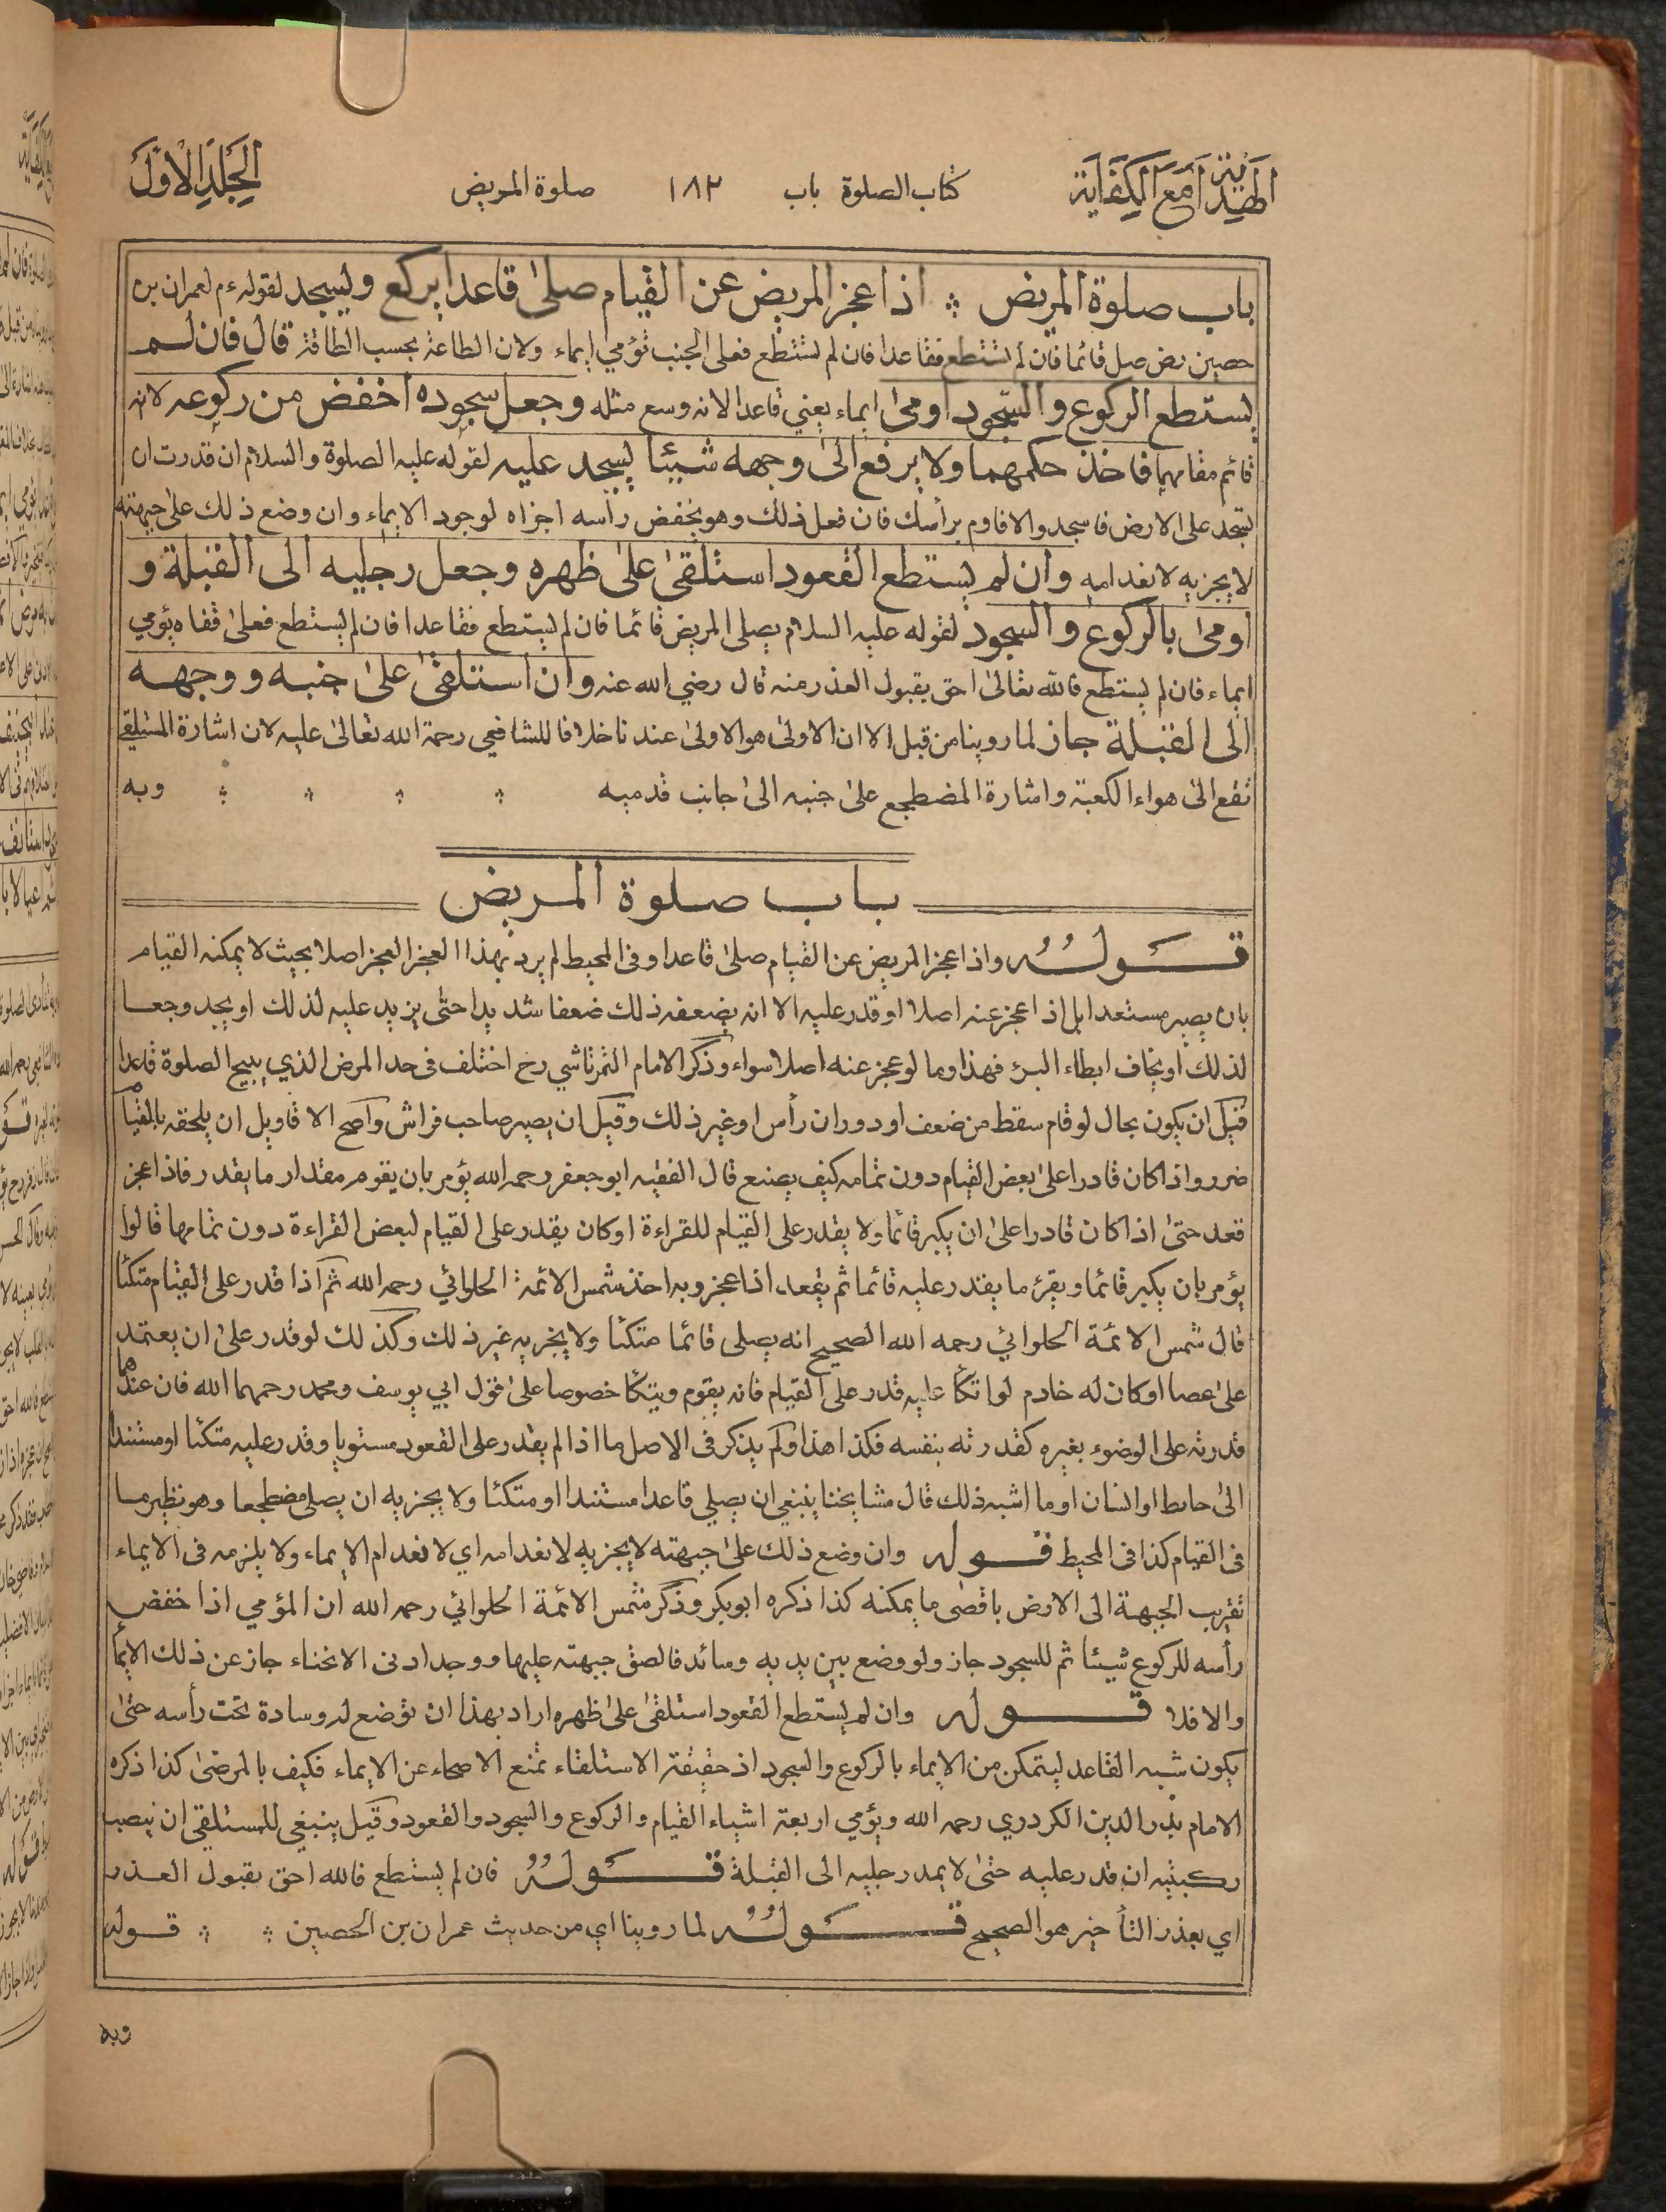 الهداية مع الكفاية
كتاب الصلوة باب ١٨٢ صلوة المريض
الجلد الاول
باب صلوة المريض ⁂ اذا عجز المريض عن القيام صلىٰ قاعدا يركع ويسجد لقوله ءم لعمران بن
حصين رض صل قائما فان لم تستطع فقاعدا فان لم تستطع فعلى الجنب تؤمي ايماء ولان الطاعة بحسب الطاقة قال فان لم
يستطع الركوع والسجود اومىٰ ايماء يعني قاعدا لانه وسع مثله وجعل سجوده اخفض من ركوعه لانه
قائم مقامهما فاخذ حكمهما ولا يرفع الىٰ وجهه شيئا يسجد عليه لقوله عليه الصلوة والسلام ان قدرت ان
تسجد على الارض فاسجد والا فاوم برأسك فان فعل ذلك وهو يخفض رأسه اجزاه لوجود الايماء وان وضع ذلك علىٰ جبهته
لا يجزيه لانعدامه وان لم يستطع القعود استلقىٰ علىٰ ظهره وجعل رجليه الى القبلة و
اومىٰ بالركوع والسجود لقوله عليه السلام يصلي المريض قائما فان لم يستطع فقاعدا فان لم يستطع فعلىٰ قفاه يؤمي
ايماء فان لم يستطع فالله تعالىٰ احق بقبول العذر منه قال رضي الله عنه وان استلقىٰ علىٰ جنبه ووجهه
الى القبلة جاز لما روينا من قبل الا ان الاولىٰ هو الاولىٰ عندنا خلافا للشافعي رحمة الله تعالىٰ عليه لان اشارة المستلقي
تقع الىٰ هواء الكعبة واشارة المضطجع علىٰ جنبه الىٰ جانب قدميه ⁂ ⁂ ⁂ ⁂ وبه
باب صلوة المريض
قوله واذا عجز المريض عن القيام صلىٰ قاعدا وفى المحيط لم يرد بهذا العجز العجز اصلا بحيث لا يمكنه القيام
بان يصير مستعدا بل اذا عجز عنه اصلا او قدر عليه الا انه يضعفه ذلك ضعفا شديدا حتىٰ يزيد عليه لذلك او يجد وجعا
لذلك او يخاف ابطاء البرء فهذا وما لو عجز عنه اصلا سواء وذكر الامام التمرتاشي رح اختلف فى حد المرض الذي يبيح الصلوة قاعدا
قيل ان يكون بحال لو قام سقط من ضعف او دوران رأس او غير ذلك وقيل ان يصير صاحب فراش واصح الاقاويل ان يلحقه بالقيام
ضرر واذا كان قادرا علىٰ بعض القيام دون تمامه كيف يصنع قال الفقيه ابو جعفر رحمه الله يؤمر بان يقوم مقدار ما يقدر فاذا عجز
قعد حتىٰ اذا كان قادرا علىٰ ان يكبر قائما ولا يقدر على القيام للقراءة او كان يقدر على القيام لبعض القراءة دون تمامها قالوا
يؤمر بان يكبر قائما ويقرئ ما يقدر عليه قائما ثم يقعد اذا عجز وبه اخذ شمس الائمة الحلوائي رحمه الله ثم اذا قدر على القيام متكئا
قال شمس الائمة الحلوائي رحمه الله الصحيح انه يصلي قائما متكئا ولا يجزيه غير ذلك وكذلك لو قدر علىٰ ان يعتمد
علىٰ عصا او كان له خادم لو اتكأ عليه قدر على القيام فانه يقوم ويتكأ خصوصا علىٰ قول ابي يوسف ومحمد رحمهما الله فان عندهما
قدرته على الوضوء بغيره كقدرته بنفسه فكذا هذا ولم يذكر فى الاصل ما اذا لم يقدر على القعود مستويا وقدر عليه متكئا او مستندا
الىٰ حايط او انسان او ما اشبه ذلك قال مشايخنا ينبغي ان يصلي قاعدا مستندا او متكئا ولا يجزيه ان يصلي مضطجعا وهو نظير ما
فى القيام كذا فى المحيط قوله وان وضع ذلك علىٰ جبهته لا يجزيه لانعدامه اي لانعدام الايماء ولا يلزمه فى الايماء
تقريب الجبهة الى الارض باقصىٰ ما يمكنه كذا ذكره ابو بكر وذكر شمس الائمة الحلوائي رحمه الله ان المؤمي اذا خفض
رأسه للركوع شيئا ثم للسجود جاز ولو وضع بين يديه وسائد فالصق جبهته عليها ووجد ادنى الانحناء جاز عن ذلك الايماء
والا فلا قوله وان لم يستطع القعود استلقىٰ علىٰ ظهره اراد بهذا ان توضع له وسادة تحت رأسه حتىٰ
يكون شبه القاعد ليتمكن من الايماء بالركوع والسجود اذ حقيقة الاستلقاء تمنع الاصحاء عن الايماء فكيف بالمرضىٰ كذا ذكره
الامام بدر الدين الكردري رحمه الله ويؤمي اربعة اشياء القيام والركوع والسجود والقعود وقيل ينبغي للمستلقي ان ينصب
ركبتيه ان قدر عليه حتىٰ لا يمد رجليه الى القبلة قوله فان لم يستطع فالله احق بقبول العذر
اي بعذر التأخير هو الصحيح قوله لما روينا اي من حديث عمران بن الحصين ⁂ ⁂ قوله
وبه